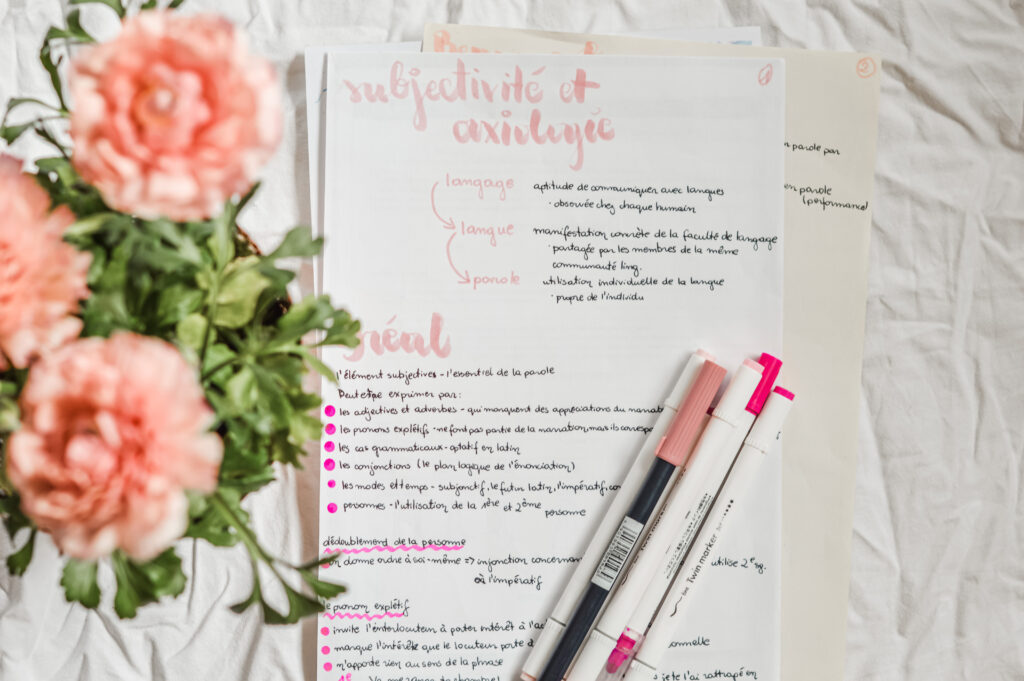 subjectivité et
axiologie
1
2
n parole par
en parole
(performance)
langage aptitude de communiquer avec langues
· observée chez chaque humain
langue manifestation concrète de la faculté de langage
· partagée par les membres de la même
communauté ling.
parole utilisation individuelle de la langue
· propre de l'individu
Bréal
l'élément subjectives - l'essentiel de la parole
Peut etre exprimer par:
les adjectives et adverbes - qui manquent des appréciations du narrat
les pronoms explétifs - ne font pas partie de la narration, mais ils corresp
les cas grammaticaux - optatif en latin
les conjonctions (le plan logique de l'énonciation)
les modes et temps - subjonctif, le futur latin, l'impératif, con
personnes - l'utilisation de la 1ère et 2ème personne
dédoublement de la personne
on donne ordre à soi-même => injonction concernan utilise 2e sg.
où l'impératif
le pronom explétif
invite l'enterlocuteur à poter intérêt à l'ac
manque l'intérêt que le locuteur porte à onnelle
n'apporte rien au sens de la phrase
s je te l'ai rattrapé en
Twin marker
be Twin marker